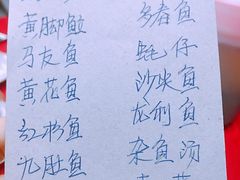 黄脚鱲 多春鱼
马友鱼 蚝仔
黄花鱼 沙尖鱼
红杉鱼 龙利鱼
九肚鱼 杂鱼汤